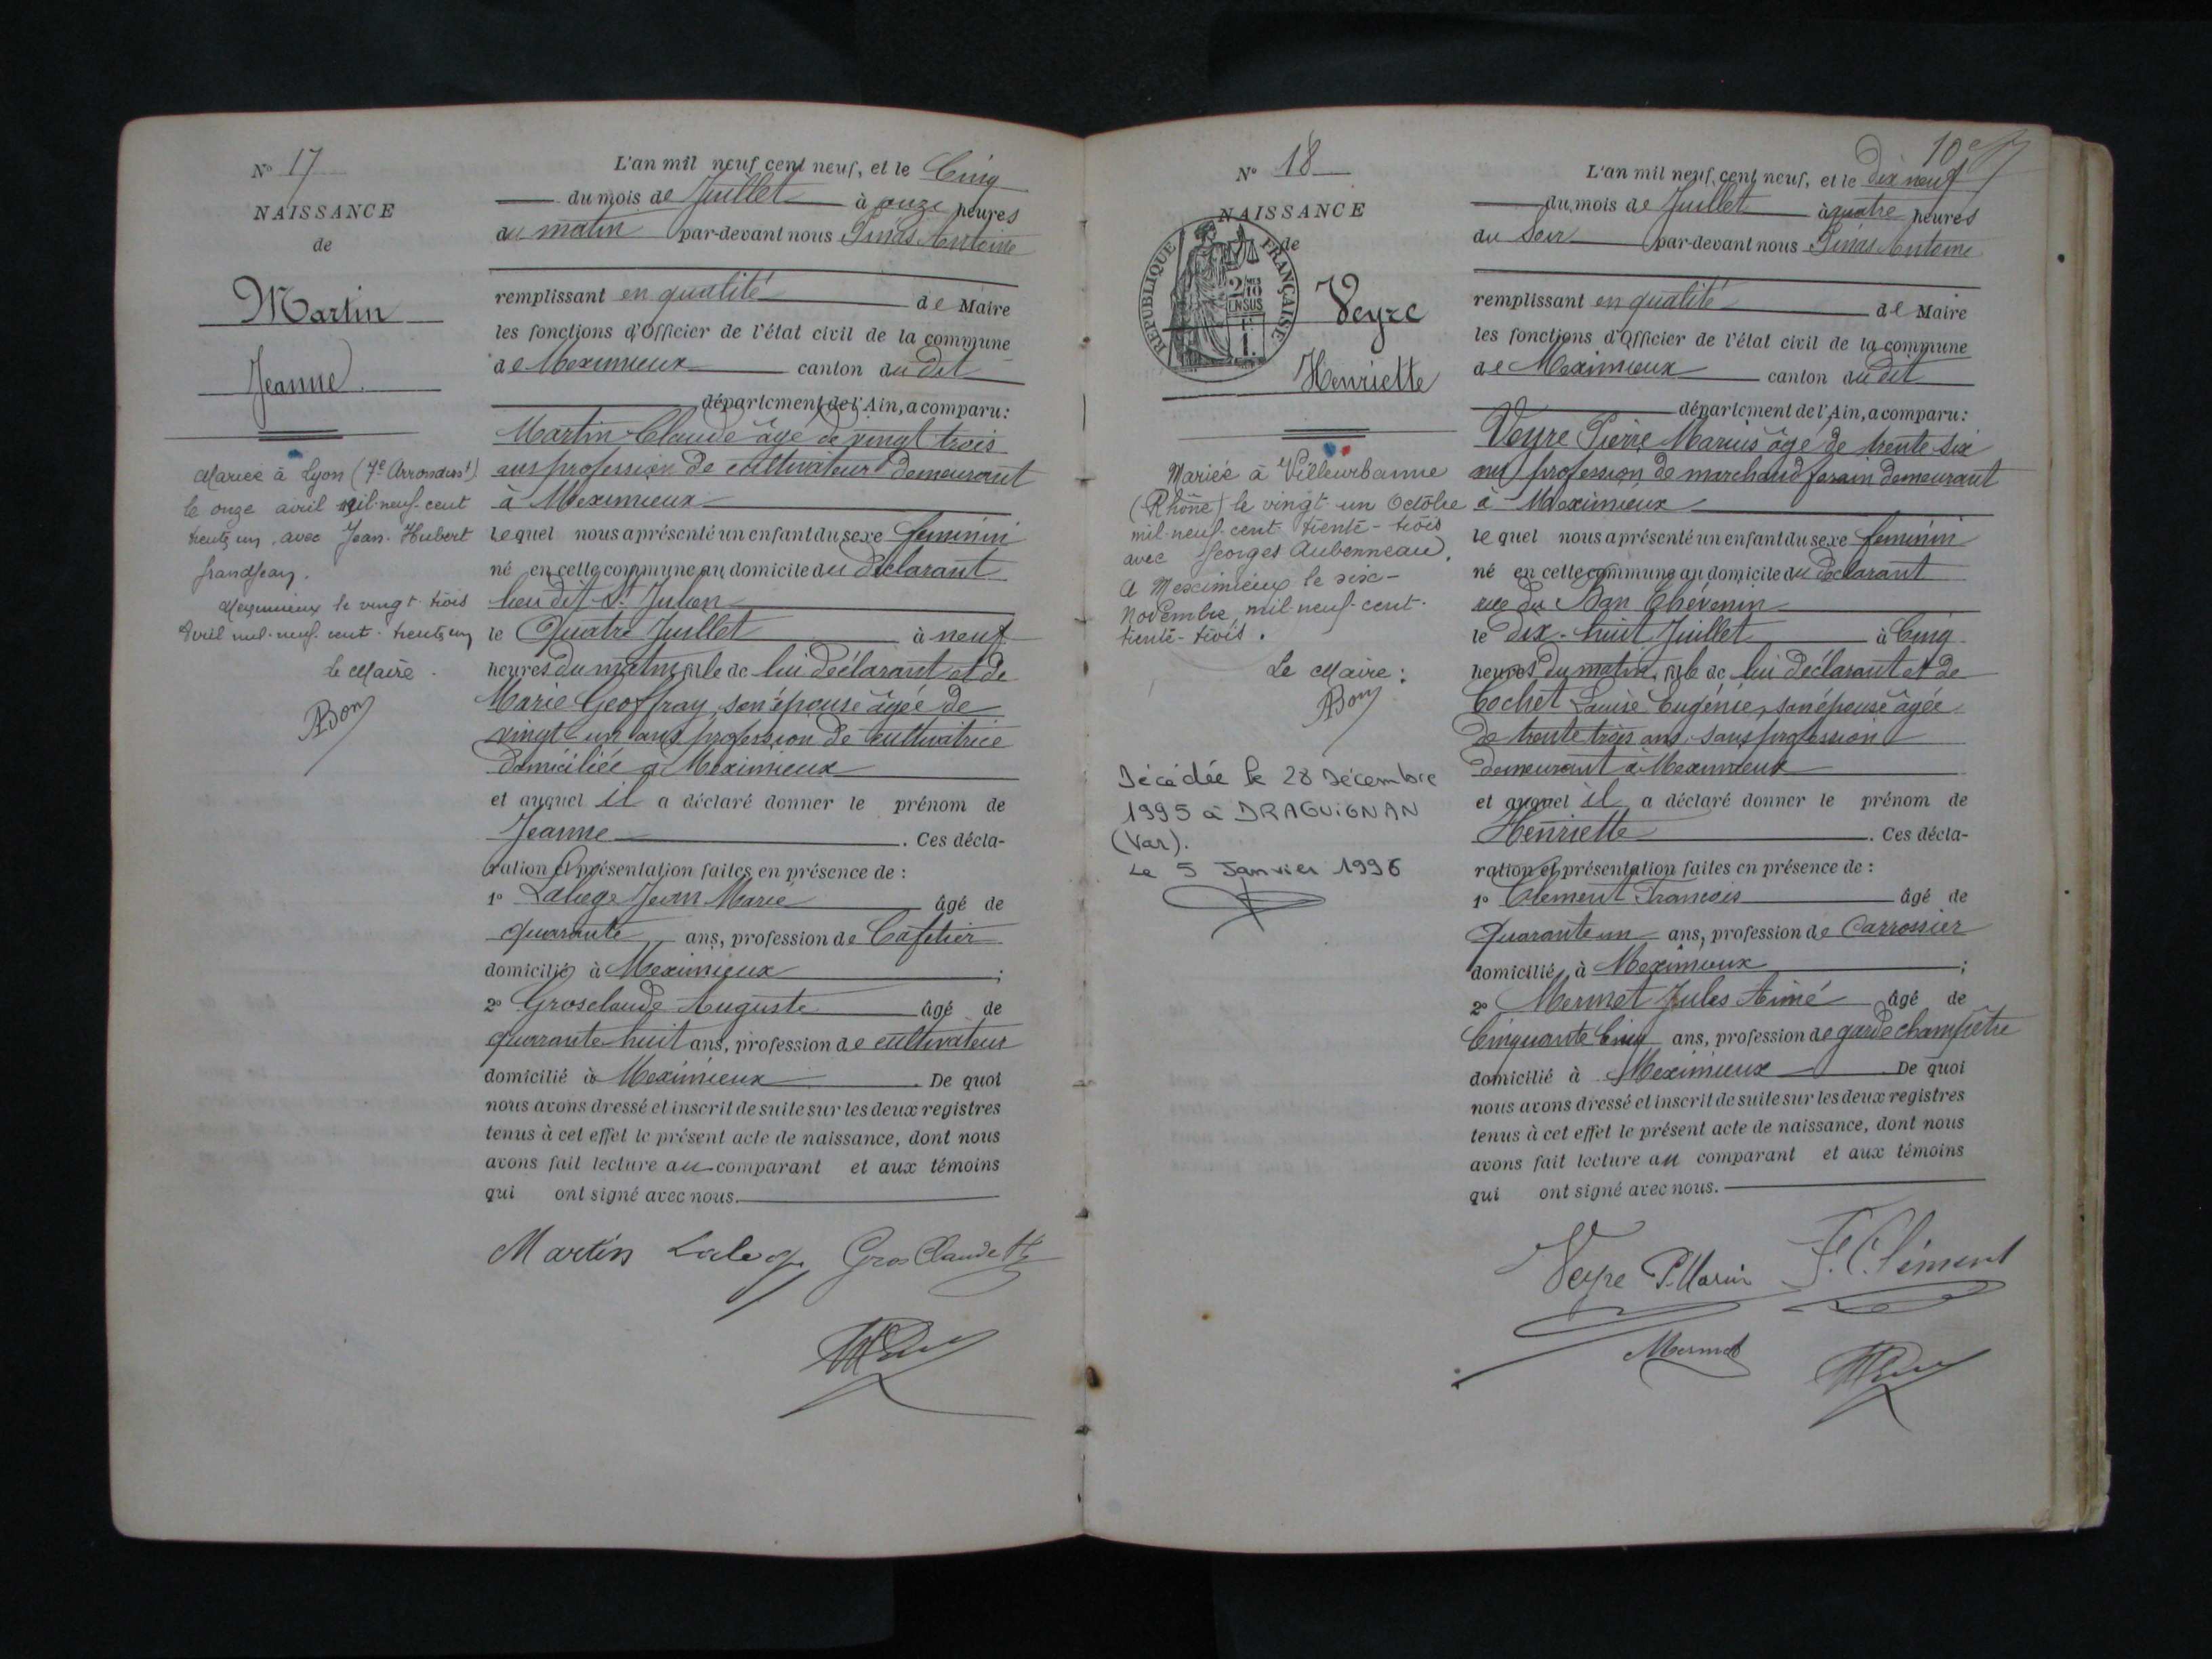 N° 17
NAISSANCE
de
Martin
Jeanne
Mariée à Lyon (7e Arrondisst)
le onze avril mil-neuf-cent
trente un, avec Jean-Hubert
Grandjean.
Meximieux le vingt-trois
Avril mil-neuf-cent-trente un
le Maire.
ABon
L'an mil neuf cent neuf, et le Cinq
du mois de Juillet à onze heures
du matin par-devant nous Antoine
remplissant en qualité de Maire
les fonctions d'Officier de l'état civil de la commune
de Meximieux canton du dit
département de l'Ain, a comparu:
Martin Claude âgé de vingt trois
ans profession de cultivateur demeurant
à Meximieux
Lequel nous a présenté un enfant du sexe feminin
né en cette commune au domicile du déclarant
lieu dit St Julien
le Quatre Juillet à neuf
heures du matin, file de lui déclarant et de
Marie Geoffray, son épouse âgée de
vingt-un ans profession de cultivatrice
domiciliée à Meximieux
et auquel il a déclaré donner le prénom de
Jeanne. Ces décla-
ration et présentation faites en présence de :
1° Jean Marie âgé de
quarante ans, profession de Cafetier
domicilié à Meximieux ;
2° Grosclaude Auguste âgé de
quarante huit ans, profession de cultivateur
domicilié à Meximieux. De quoi
nous avons dressé et inscrit de suite sur les deux registres
tenus à cet effet le présent acte de naissance, dont nous
avons fait lecture au comparant et aux témoins
qui ont signé avec nous.
Martin GrosClaude
10e
N° 18
NAISSANCE
de
RÉPUBLIQUE FRANÇAISE
2/10 EN SUS
Veyre
Henriette
Mariée à Villeurbanne
(Rhône) le vingt-un Octobre
mil-neuf-cent-trente-trois
avec Georges Aubenneau.
A Meximieux le six-
Novembre mil-neuf-cent-
trente-trois.
Le Maire :
ABon
Décédée le 28 Décembre
1995 à DRAGUIGNAN
(Var).
Le 5 Janvier 1996
L'an mil neuf cent neuf, et le dix neuf
du mois de Juillet à quatre heures
du soir par-devant nous Antoine
remplissant en qualité de Maire
les fonctions d'Officier de l'état civil de la commune
de Meximieux canton du dit
département de l'Ain, a comparu:
Veyre Pierre Marius âgé de trente six
ans profession de marchand forain demeurant
à Meximieux
le quel nous a présenté un enfant du sexe feminin
né en cette commune au domicile du déclarant
rue du Ban Thévenin
le dix-huit Juillet à Cinq
heures du matin, file de lui déclarant et de
Cochet Louise Eugénie, son épouse âgée
de trente trois ans, sans profession
demeurant à Meximieux
et auquel il a déclaré donner le prénom de
Henriette. Ces décla-
ration et présentation faites en présence de :
1° Clement François âgé de
Quarante un ans, profession de Carrossier
domicilié à Meximieux ;
2° Mermet Jules Aimé âgé de
Cinquante Cinq ans, profession de garde champêtre
domicilié à Meximieux De quoi
nous avons dressé et inscrit de suite sur les deux registres
tenus à cet effet le présent acte de naissance, dont nous
avons fait lecture au comparant et aux témoins
qui ont signé avec nous.
Veyre P. Marius F. Clément
Mermet